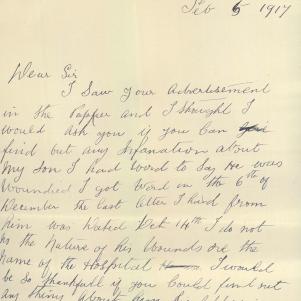 Feb 5 1917
Dear Sir
I Saw your Advertisement
in the Papper and I thought I
would ask you if you Can
find but any Infamation about
My Son I had word to Say He was
Wounded I got Word on the 6th of
December the last letter I had from
him was Dated Oct 14th I do not
No the Nature of his Wounds or the
Name of the Hospital I would
be So thankfull if you Could find out
any thing about